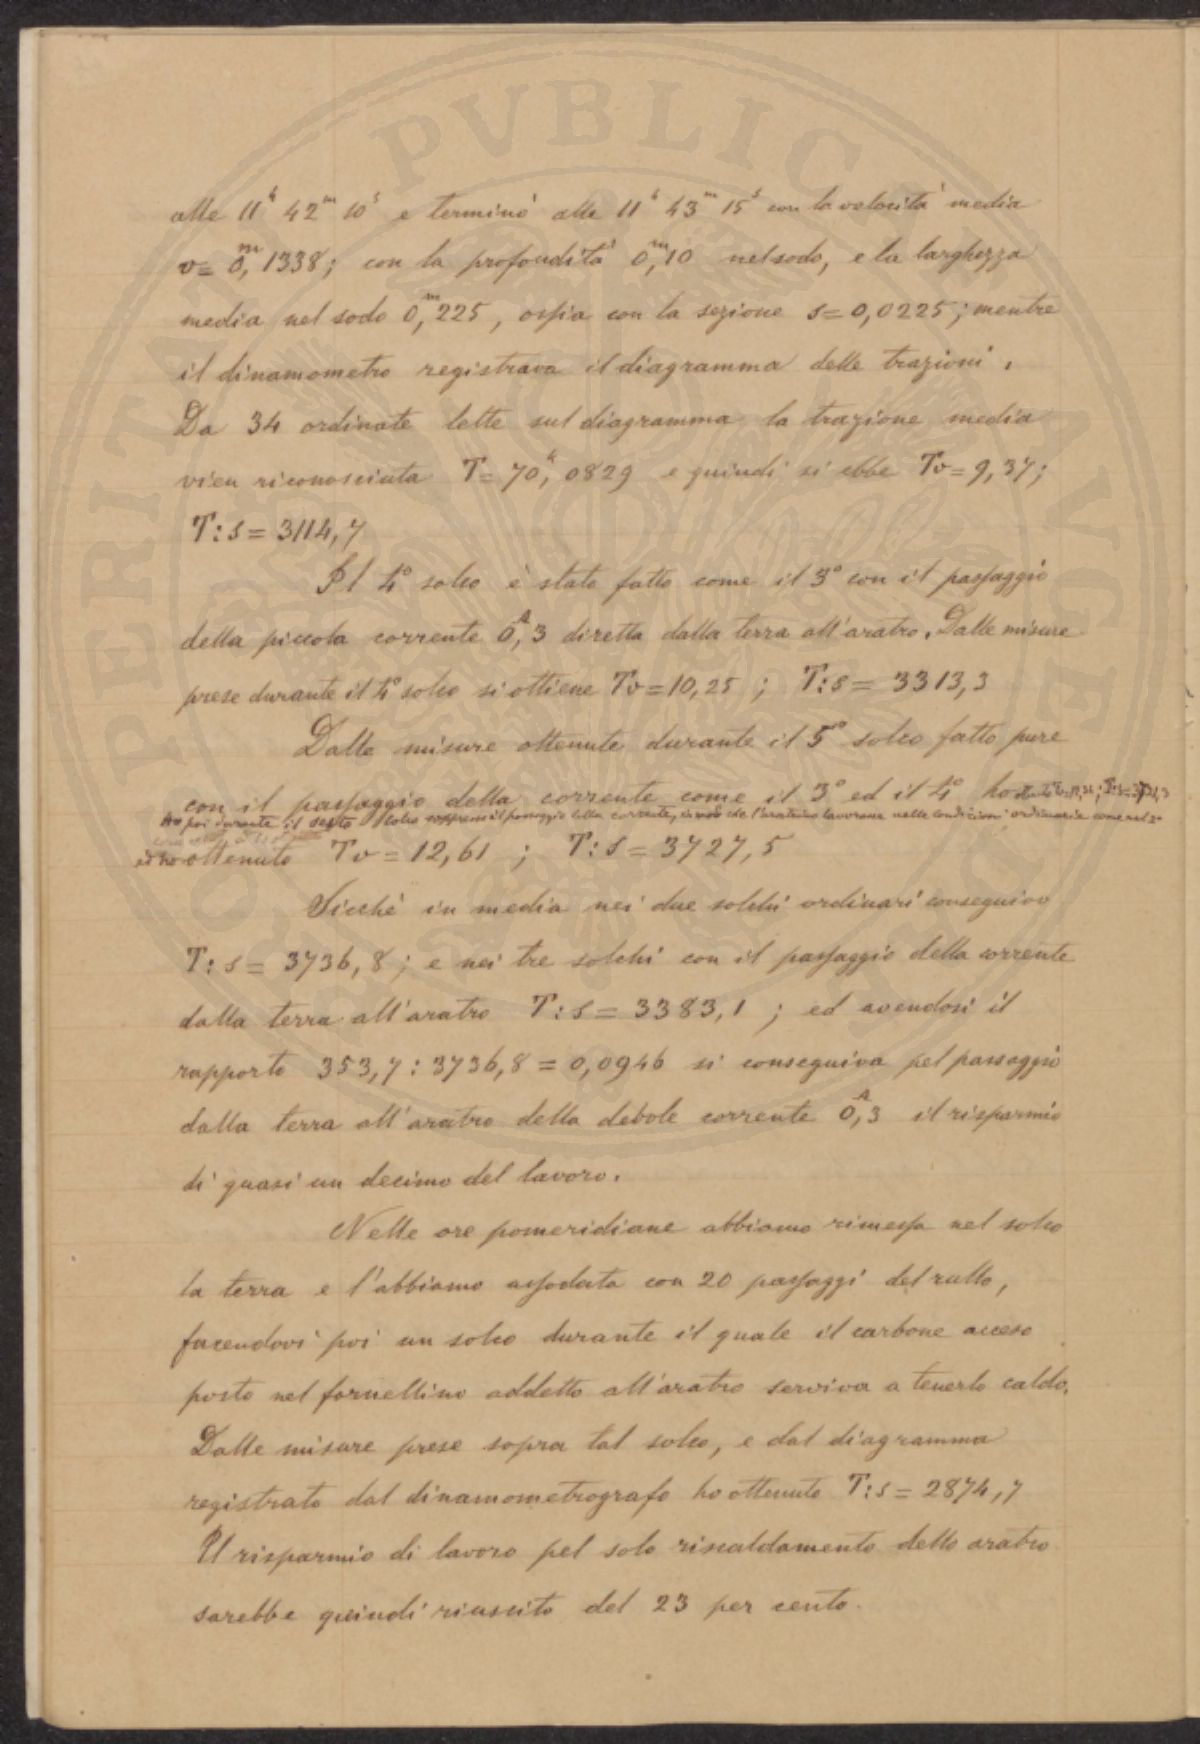 alle 11ʰ 42ᵐ 10ˢ e terminò alle 11ʰ 43ᵐ 15ˢ con la velocità media
v = 0,ᵐ1338; con la profondità 0,ᵐ10 nel sodo, e la larghezza
media nel sodo 0,ᵐ225, ossia con la sezione s = 0,0225; mentre
il dinamometro registrava il diagramma delle trazioni.
Da 34 ordinate lette sul diagramma la trazione media
vien riconosciuta T = 70,ᵏ0829 e quindi si ebbe Tv = 9,37;
T:s = 3114,7
Il 4° solco è stato fatto come il 3° con il passaggio
della piccola corrente 0,ᴬ3 diretta dalla terra all'aratro. Dalle misure
prese durante il 4° solco si ottiene Tv = 10,25; T:s = 3313,3
Dalle misure ottenute durante il 5° solco fatto pure
con il passaggio della corrente come il 3° ed il 4° ho
poi durante il sesto solco soppressi il passaggio della corrente, in modo che l'aratrino lavorava nelle condizioni ordinarie come nel 2°
ed ho ottenuto Tv = 12,61; T:s = 3727,5
Sicchè in media nei due solchi ordinari conseguivo
T:s = 3736,8; e nei tre solchi con il passaggio della corrente
dalla terra all'aratro T:s = 3383,1; ed avendosi il
rapporto 353,7 : 3736,8 = 0,0946 si conseguiva pel passaggio
dalla terra all'aratro della debole corrente 0,ᴬ3 il risparmio
di quasi un decimo del lavoro.
Nelle ore pomeridiane abbiamo rimessa nel solco
la terra e l'abbiamo assodata con 20 passaggi del rullo,
facendovi poi un solco durante il quale il carbone acceso
posto nel fornellino addetto all'aratro serviva a tenerlo caldo.
Dalle misure prese sopra tal solco, e dal diagramma
registrato dal dinamometrografo ho ottenuto T:s = 2874,7
Il risparmio di lavoro pel solo riscaldamento dello aratro
sarebbe quindi riuscito del 23 per cento.
PVBLICAE